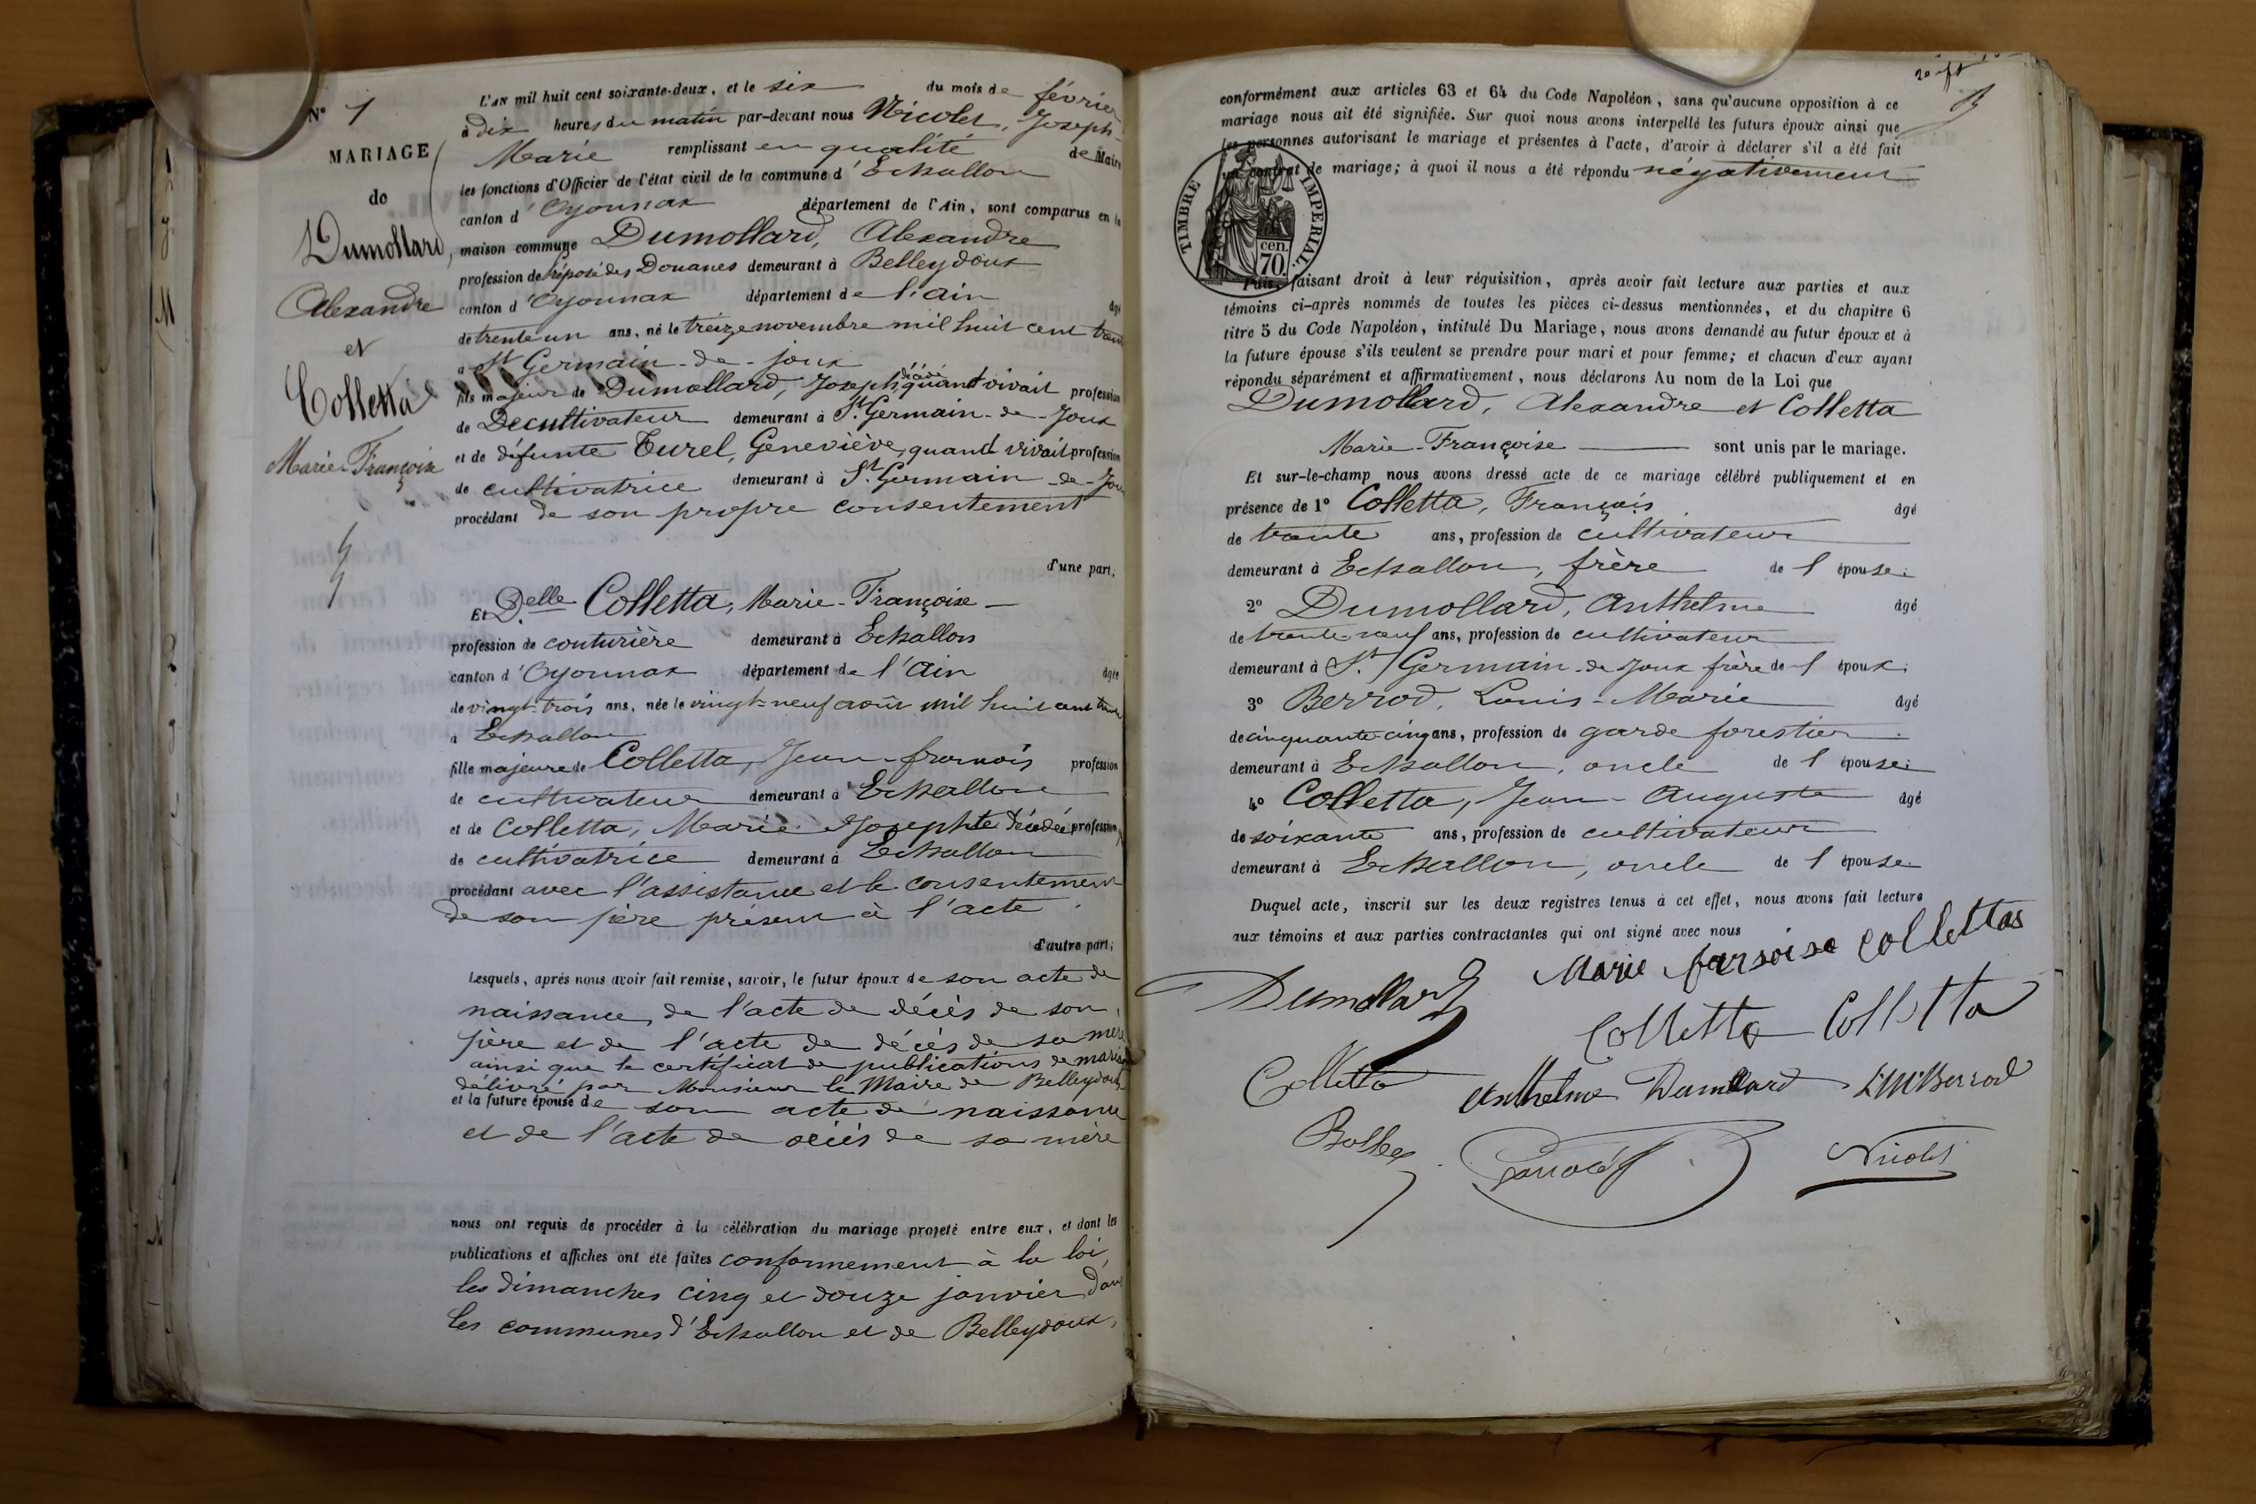 N° 1
MARIAGE
de
Dumollard,
Alexandre
et
Colletta
Marie-Françoise
L'AN mil huit cent soixante-deux, et le six du mois de février
à dix heures du matin par-devant nous Nicolet, Joseph
Marie remplissant en qualité de Maire
les fonctions d'Officier de l'état civil de la commune d'Echallon
canton d'Oyonnax département de l'Ain, sont comparus en la
maison commune Dumollard, Alexandre
profession de préposé des Douanes demeurant à Belleydoux
canton d'Oyonnax département de l'ain âgé
de trente un ans, né le treize novembre mil huit cent trente
à St Germain-de-joux
fils majeur de Dumollard, Joseph décédé quand vivait profession
de De cultivateur demeurant à St Germain-de-Joux
et de défunte Turel, Geneviève, quand vivait profession
de cultivatrice demeurant à St Germain-de-Joux
procédant de son propre consentement
d'une part;
Et Delle Colletta, Marie-Françoise
profession de couturière demeurant à Echallon
canton d'Oyonnax département de l'ain âgée
de vingt-trois ans, née le vingt-neuf août mil huit cent trente
à Echallon
fille majeure de Colletta, Jean-francois profession
de cultivateur demeurant à Echallon
et de Colletta, Marie Josephte décédée profession
de cultivatrice demeurant à Echallon
procédant avec l'assistance et le consentement
de son père présent à l'acte.
d'autre part;
Lesquels, après nous avoir fait remise, savoir, le futur époux de son acte de
naissance, de l'acte de décès de son
père et de l'acte de décès de sa mère
ainsi que le certificat de publications de mariage
délivré par Monsieur le Maire de Belleydoux
et la future épouse de son acte de naissance
et de l'acte de décès de sa mère
nous ont requis de procéder à la célébration du mariage projeté entre eux, et dont les
publications et affiches ont été faites conformement à la loi,
les dimanches cinq et douze janvier dans
les communes d'Echallon et de Belleydoux,
conformément aux articles 63 et 64 du Code Napoléon, sans qu'aucune opposition à ce
mariage nous ait été signifiée. Sur quoi nous avons interpellé les futurs époux ainsi que
les personnes autorisant le mariage et présentes à l'acte, d'avoir à déclarer s'il a été fait
un contrat de mariage; à quoi il nous a été répondu négativement
TIMBRE IMPÉRIAL
cen.
70.
Puis, faisant droit à leur réquisition, après avoir fait lecture aux parties et aux
témoins ci-après nommés de toutes les pièces ci-dessus mentionnées, et du chapitre 6
titre 5 du Code Napoléon, intitulé Du Mariage, nous avons demandé au futur époux et à
la future épouse s'ils veulent se prendre pour mari et pour femme; et chacun d'eux ayant
répondu séparément et affirmativement, nous déclarons Au nom de la Loi que
Dumollard, Alexandre et Colletta
Marie-Françoise sont unis par le mariage.
Et sur-le-champ nous avons dressé acte de ce mariage célébré publiquement et en
présence de 1° Colletta, François âgé
de trente ans, profession de cultivateur
demeurant à Echallon, frère de l'épouse;
2° Dumollard, Anthelme âgé
de trente-neuf ans, profession de cultivateur
demeurant à St Germain-de-Joux frère de l'époux;
3° Berrod, Louis-Marie âgé
de cinquante-cinq ans, profession de garde forestier
demeurant à Echallon, oncle de l'épouse;
4° Colletta, Jean-Auguste âgé
de soixante ans, profession de cultivateur
demeurant à Echallon, oncle de l'épouse
Duquel acte, inscrit sur les deux registres tenus à cet effet, nous avons fait lecture
aux témoins et aux parties contractantes qui ont signé avec nous
Marie farsoise collettas
Dumollard
Colletta Colletta
Colletta
Anthelme Dumollard L. M. Berrod
Nicolet